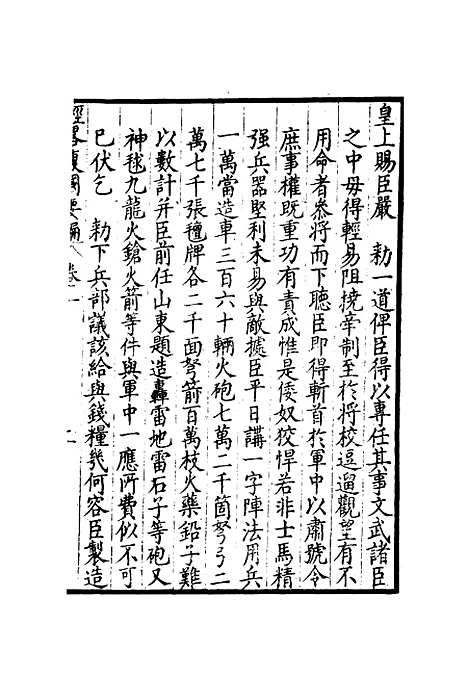 皇上賜臣嚴　勑一道俾臣得以專任其事文武諸臣
之中毋得輕易阻撓牽制至於將校逗遛觀望有不
用命者參將而下聽臣即得斬首於軍中以肅號令
庶事權既重功有責成惟是倭奴狡悍若非士馬精
强兵器堅利未易與敵據臣平日講一字陣法用兵
一萬當造車三百六十輛火砲七萬二千箇弩弓二
萬七千張氊牌各二千面弩箭百萬枝火藥鉛子難
以數計并臣前任山東題造轟雷地雷石子等砲又
神毬九龍火鎗火箭等件與軍中一應所費似不可
已伏乞　勑下兵部議該給與錢糧幾何容臣製造
經畧復國要編　卷之一